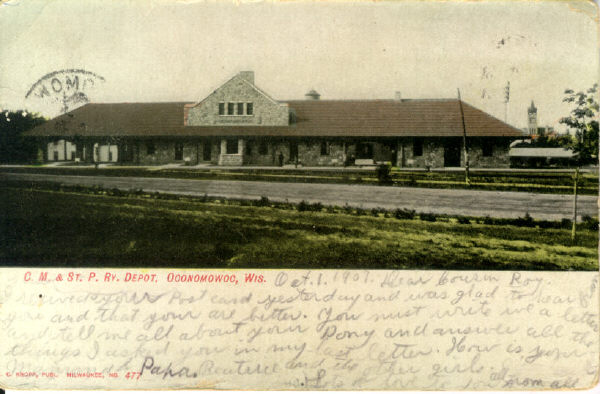 WOMO
C. M. & ST. P. RY. DEPOT, OCONOMOWOC, WIS. Oct. 1. 1907. Dear Cousin Roy
I received your Post card yesterday and was glad to hear from
you and that your are better. You must write me a letter
and tell me all about your Pony and answer all the
things I asked you in my last letter. How is your
Papa. Beatrice and the other girls
C. KNOPP, PUBL. MILWAUKEE, NO. 477 Lots of love to you all from all